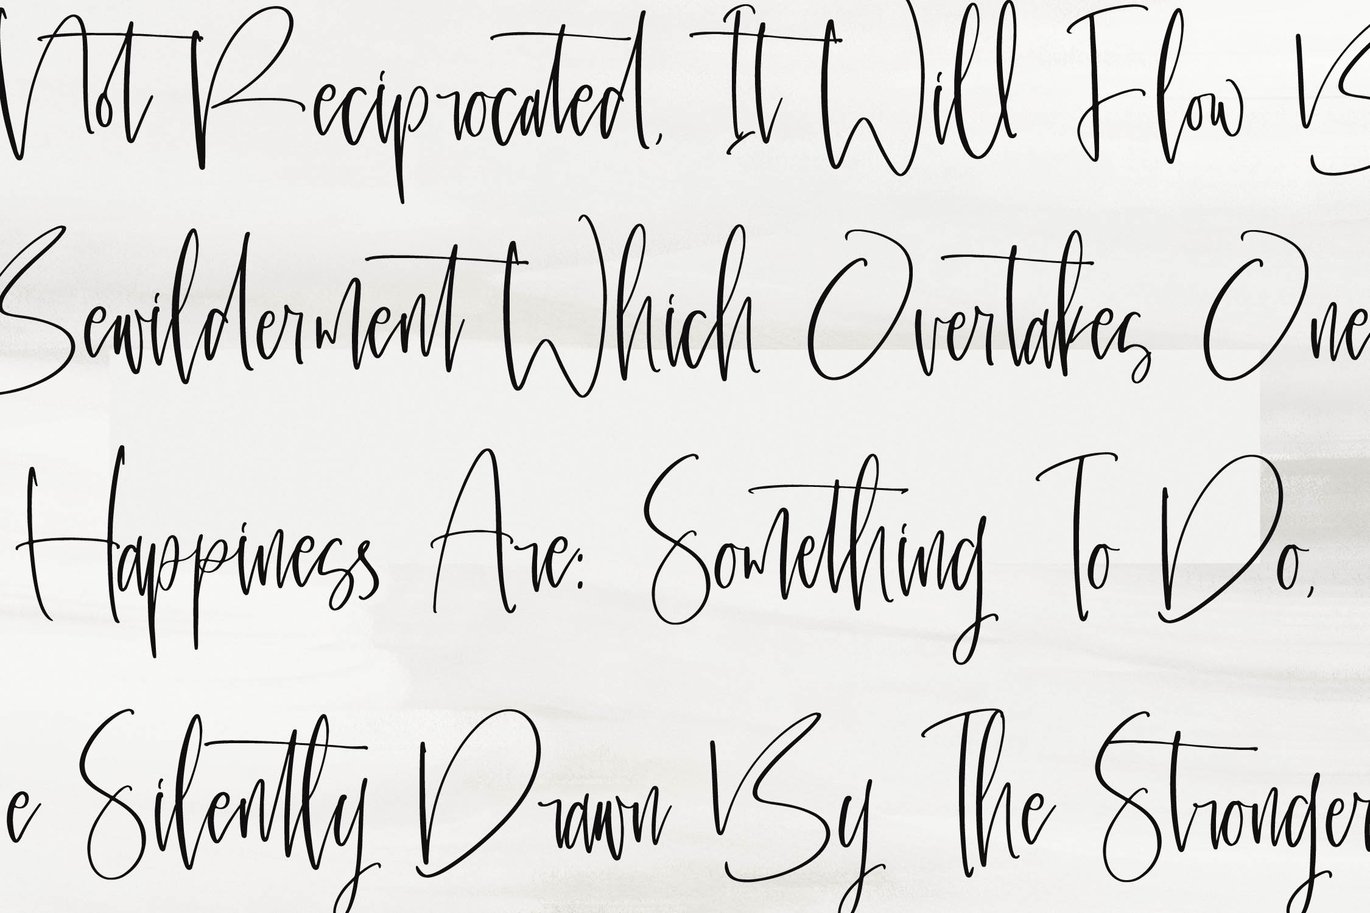 Not Reciprocated, It Will Flow B
Bewilderment Which Overtakes One
Happiness Are: Something To Do,
e Silently Drawn By The Stronger